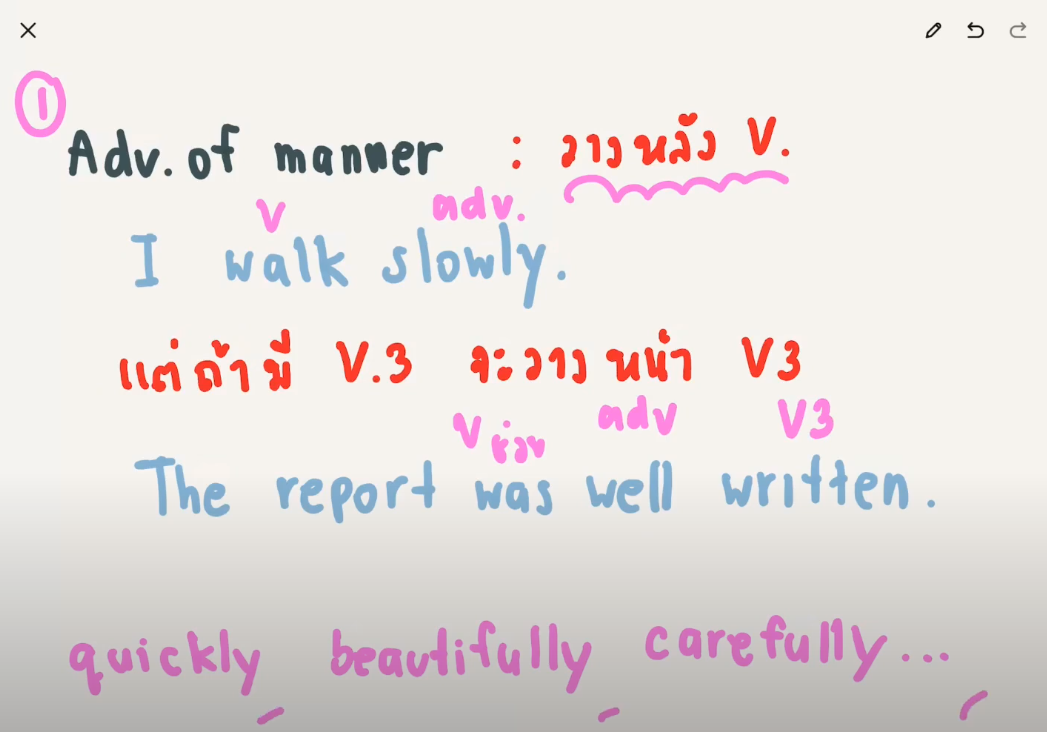 ①
Adv. of manner : วางหลัง V.
V adv.
I walk slowly.
แต่ถ้ามี V.3 จะวางหน้า V3
V ช่วย adv V3
The report was well written.
quickly beautifully carefully...